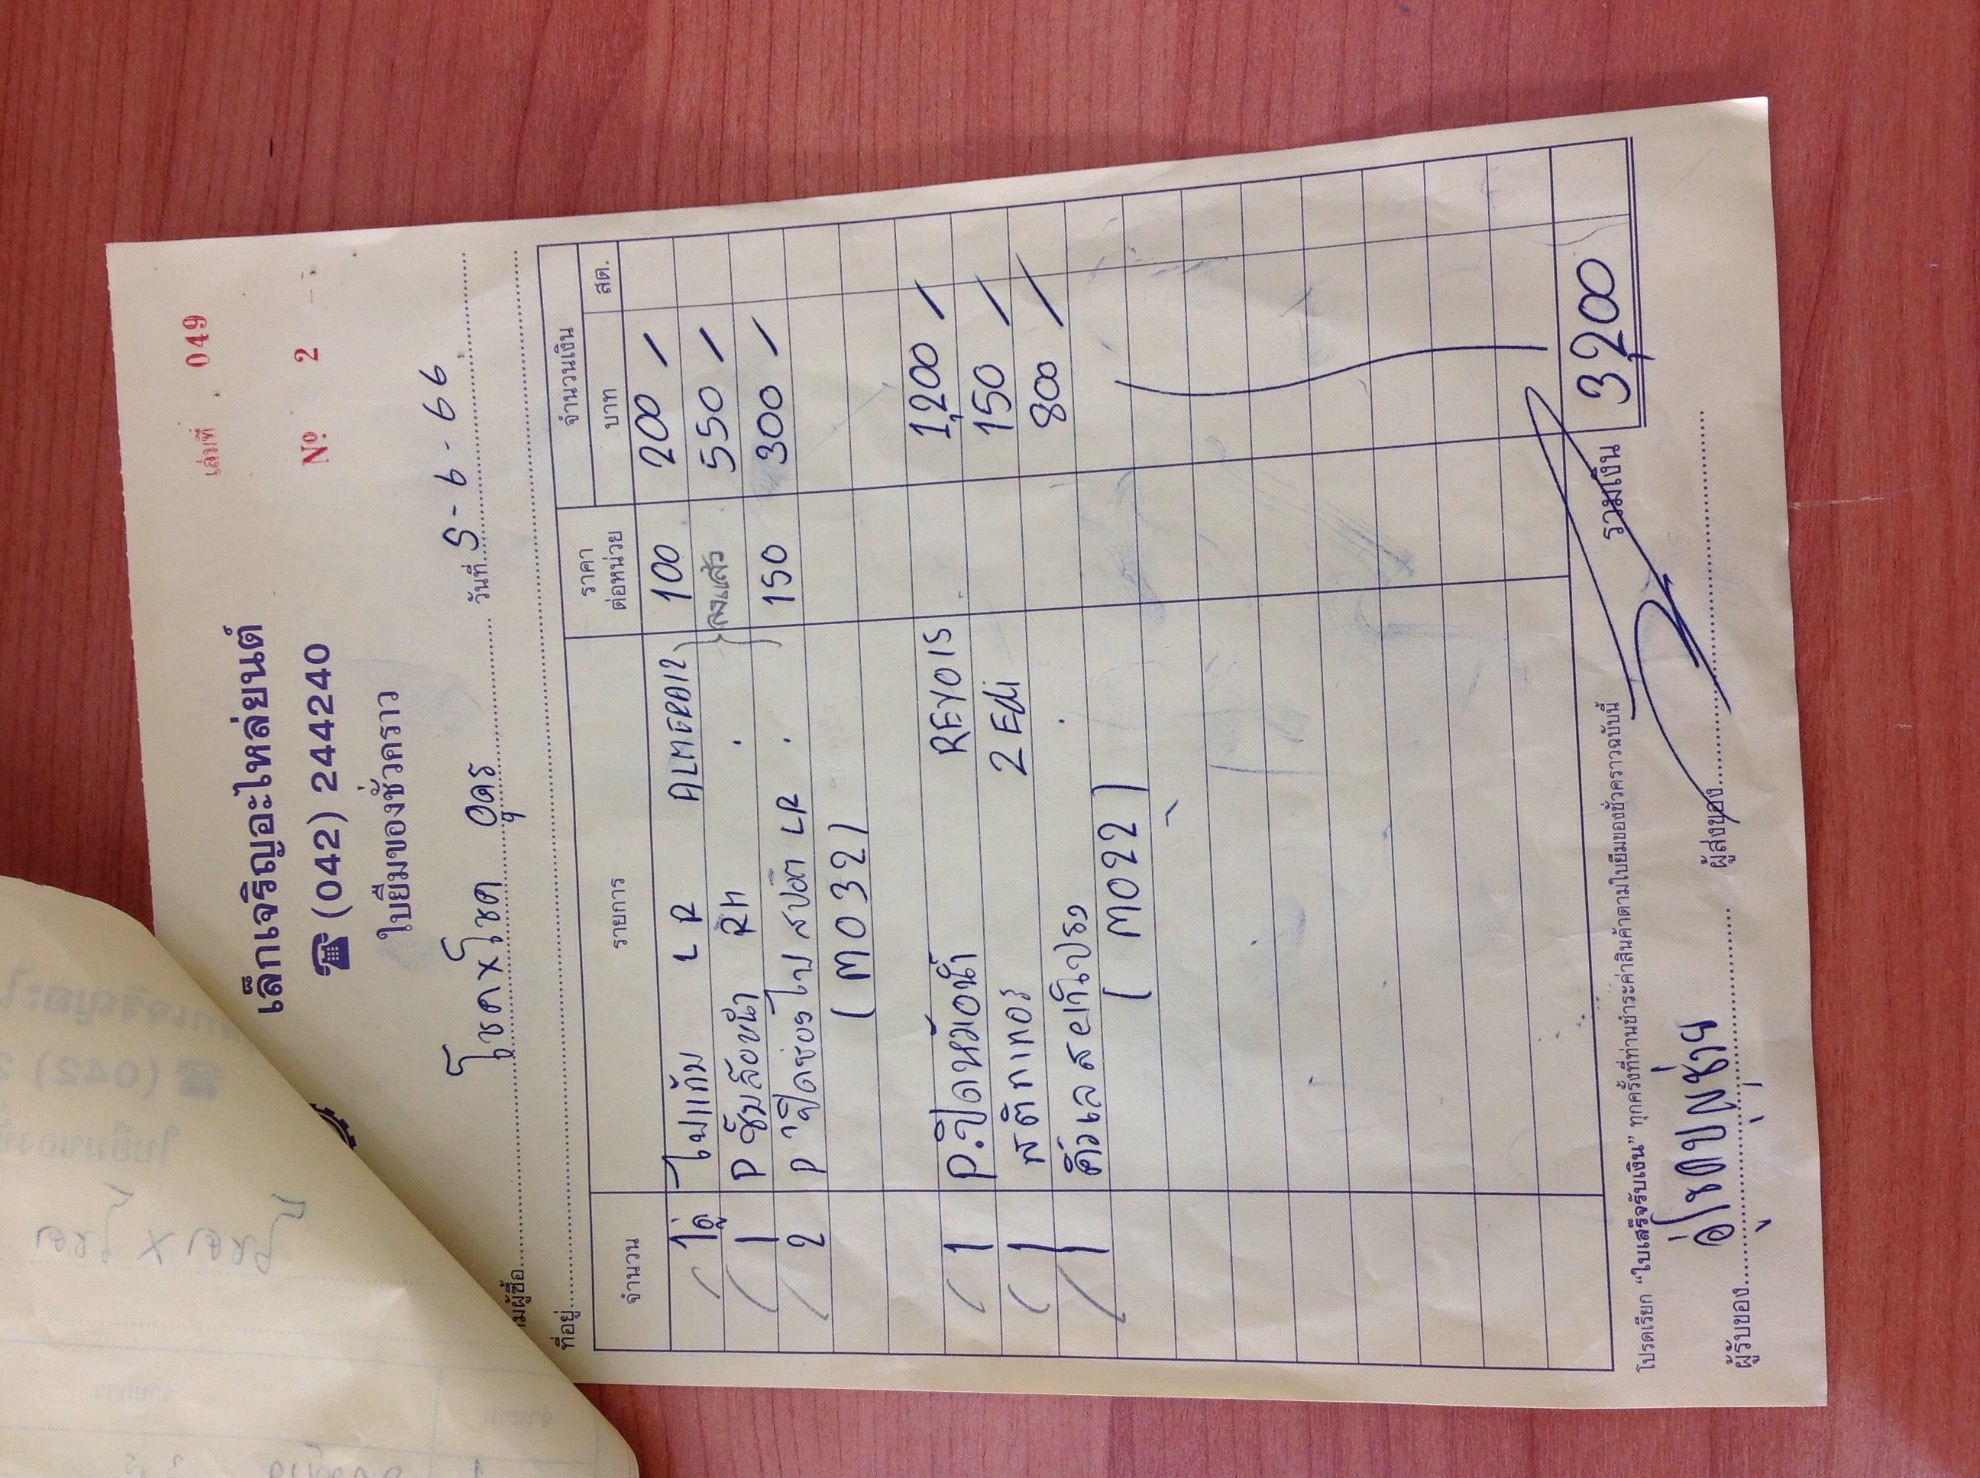 เล่มที่ 049
เล็กเจริญอะไหล่ยนต์
☎ (042) 244240
Nº 2
ใบยืมของชั่วคราว
นามผู้ซื้อ โชคxโชค อุดร วันที่ 5-6-66
ที่อยู่
จำนวน รายการ ราคาต่อหน่วย จำนวนเงิน บาท สต.
1คู่ ไฟแก้ม L R ALMERA12 100 200
1 P ซุ้มล้อหน้า RH ลงแล้ว 550
2 P ปิดช่องไฟสปอต LR 150 300
(M032)
1 P.ปิดหม้อน้ำ REVO15 1,200
1 สติกเกอร์ 2 Edi 150
1 คิ้วเลสแก้มโปร่ง 800
(M022)
รวมเงิน 3,200
โปรดเรียก "ใบเสร็จรับเงิน" ทุกครั้งที่ท่านชำระค่าสินค้าตามใบยืมของชั่วคราวฉบับนี้
ผู้รับของ ผู้ส่งของ
โชคxโชค